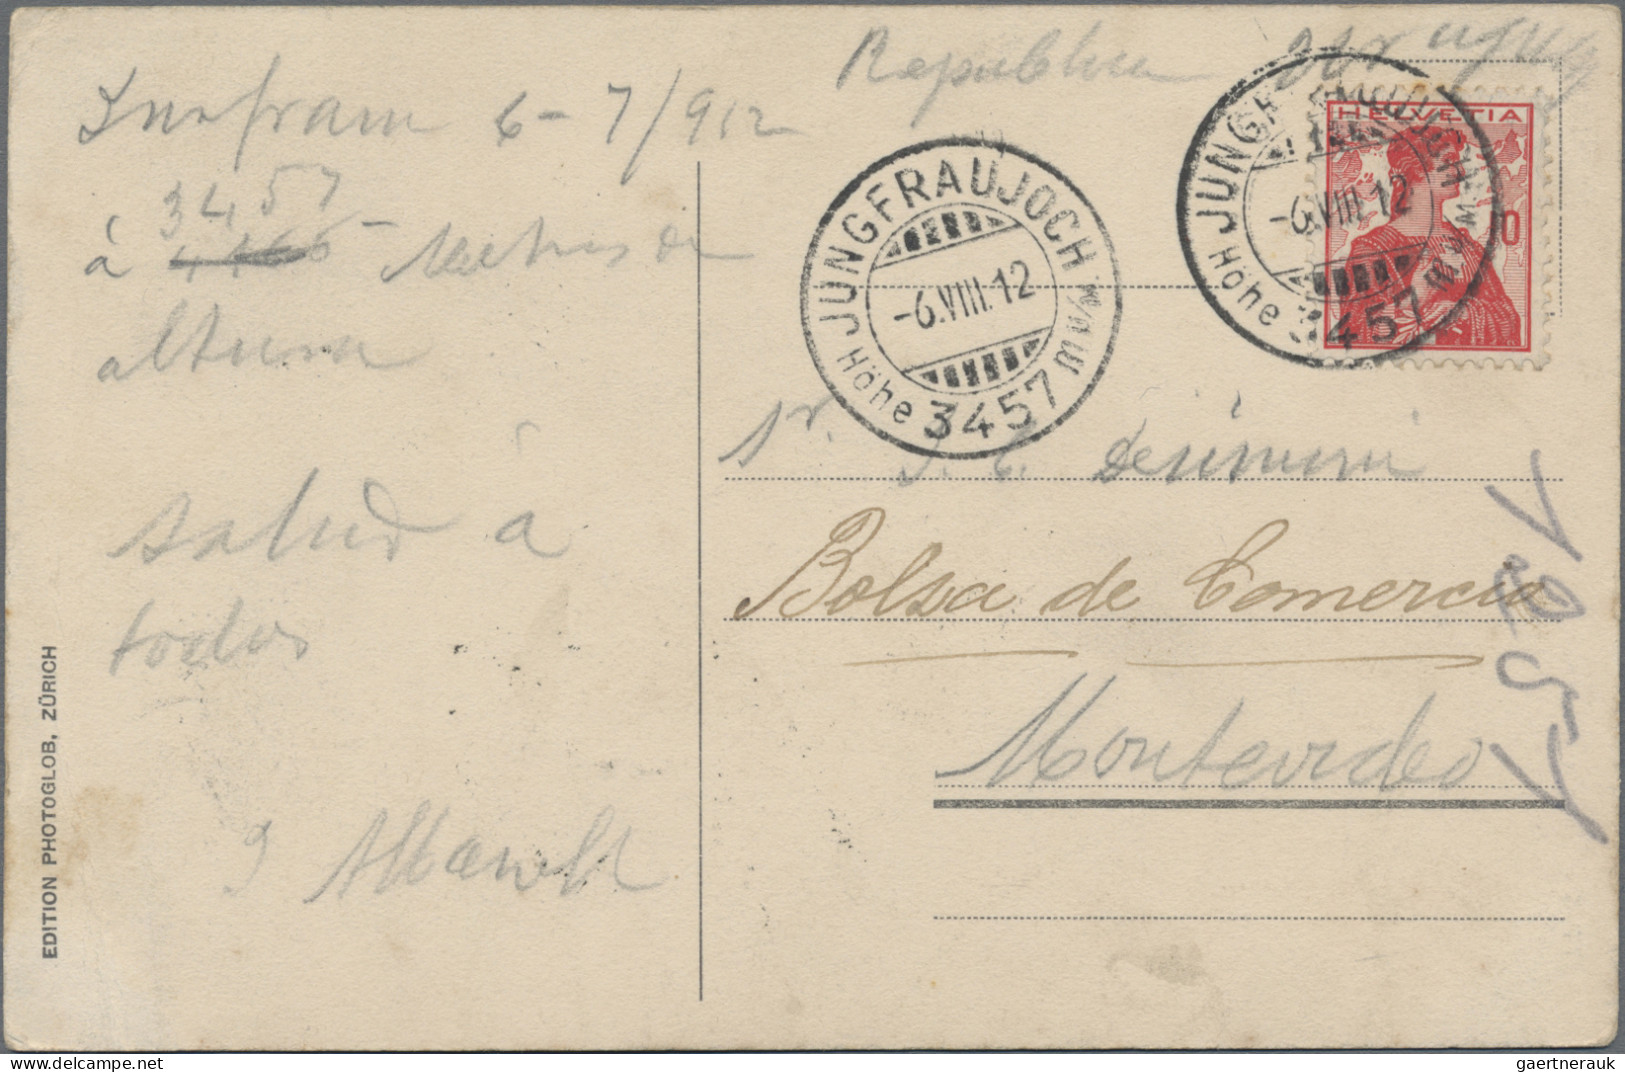 6 - 7/912
à 3457 Metros de
altura
salud à
todos
EDITION PHOTOGLOB, ZÜRICH
Republica Uruguay
JUNGFRAUJOCH
-6.VIII.12
Höhe 3457 m
JUNGFRAUJOCH
-6.VIII.12
Höhe 3457 m
HELVETIA
Sr.
Bolsa de Comercio
Montevideo
www.delcampe.net
gaertnerauk